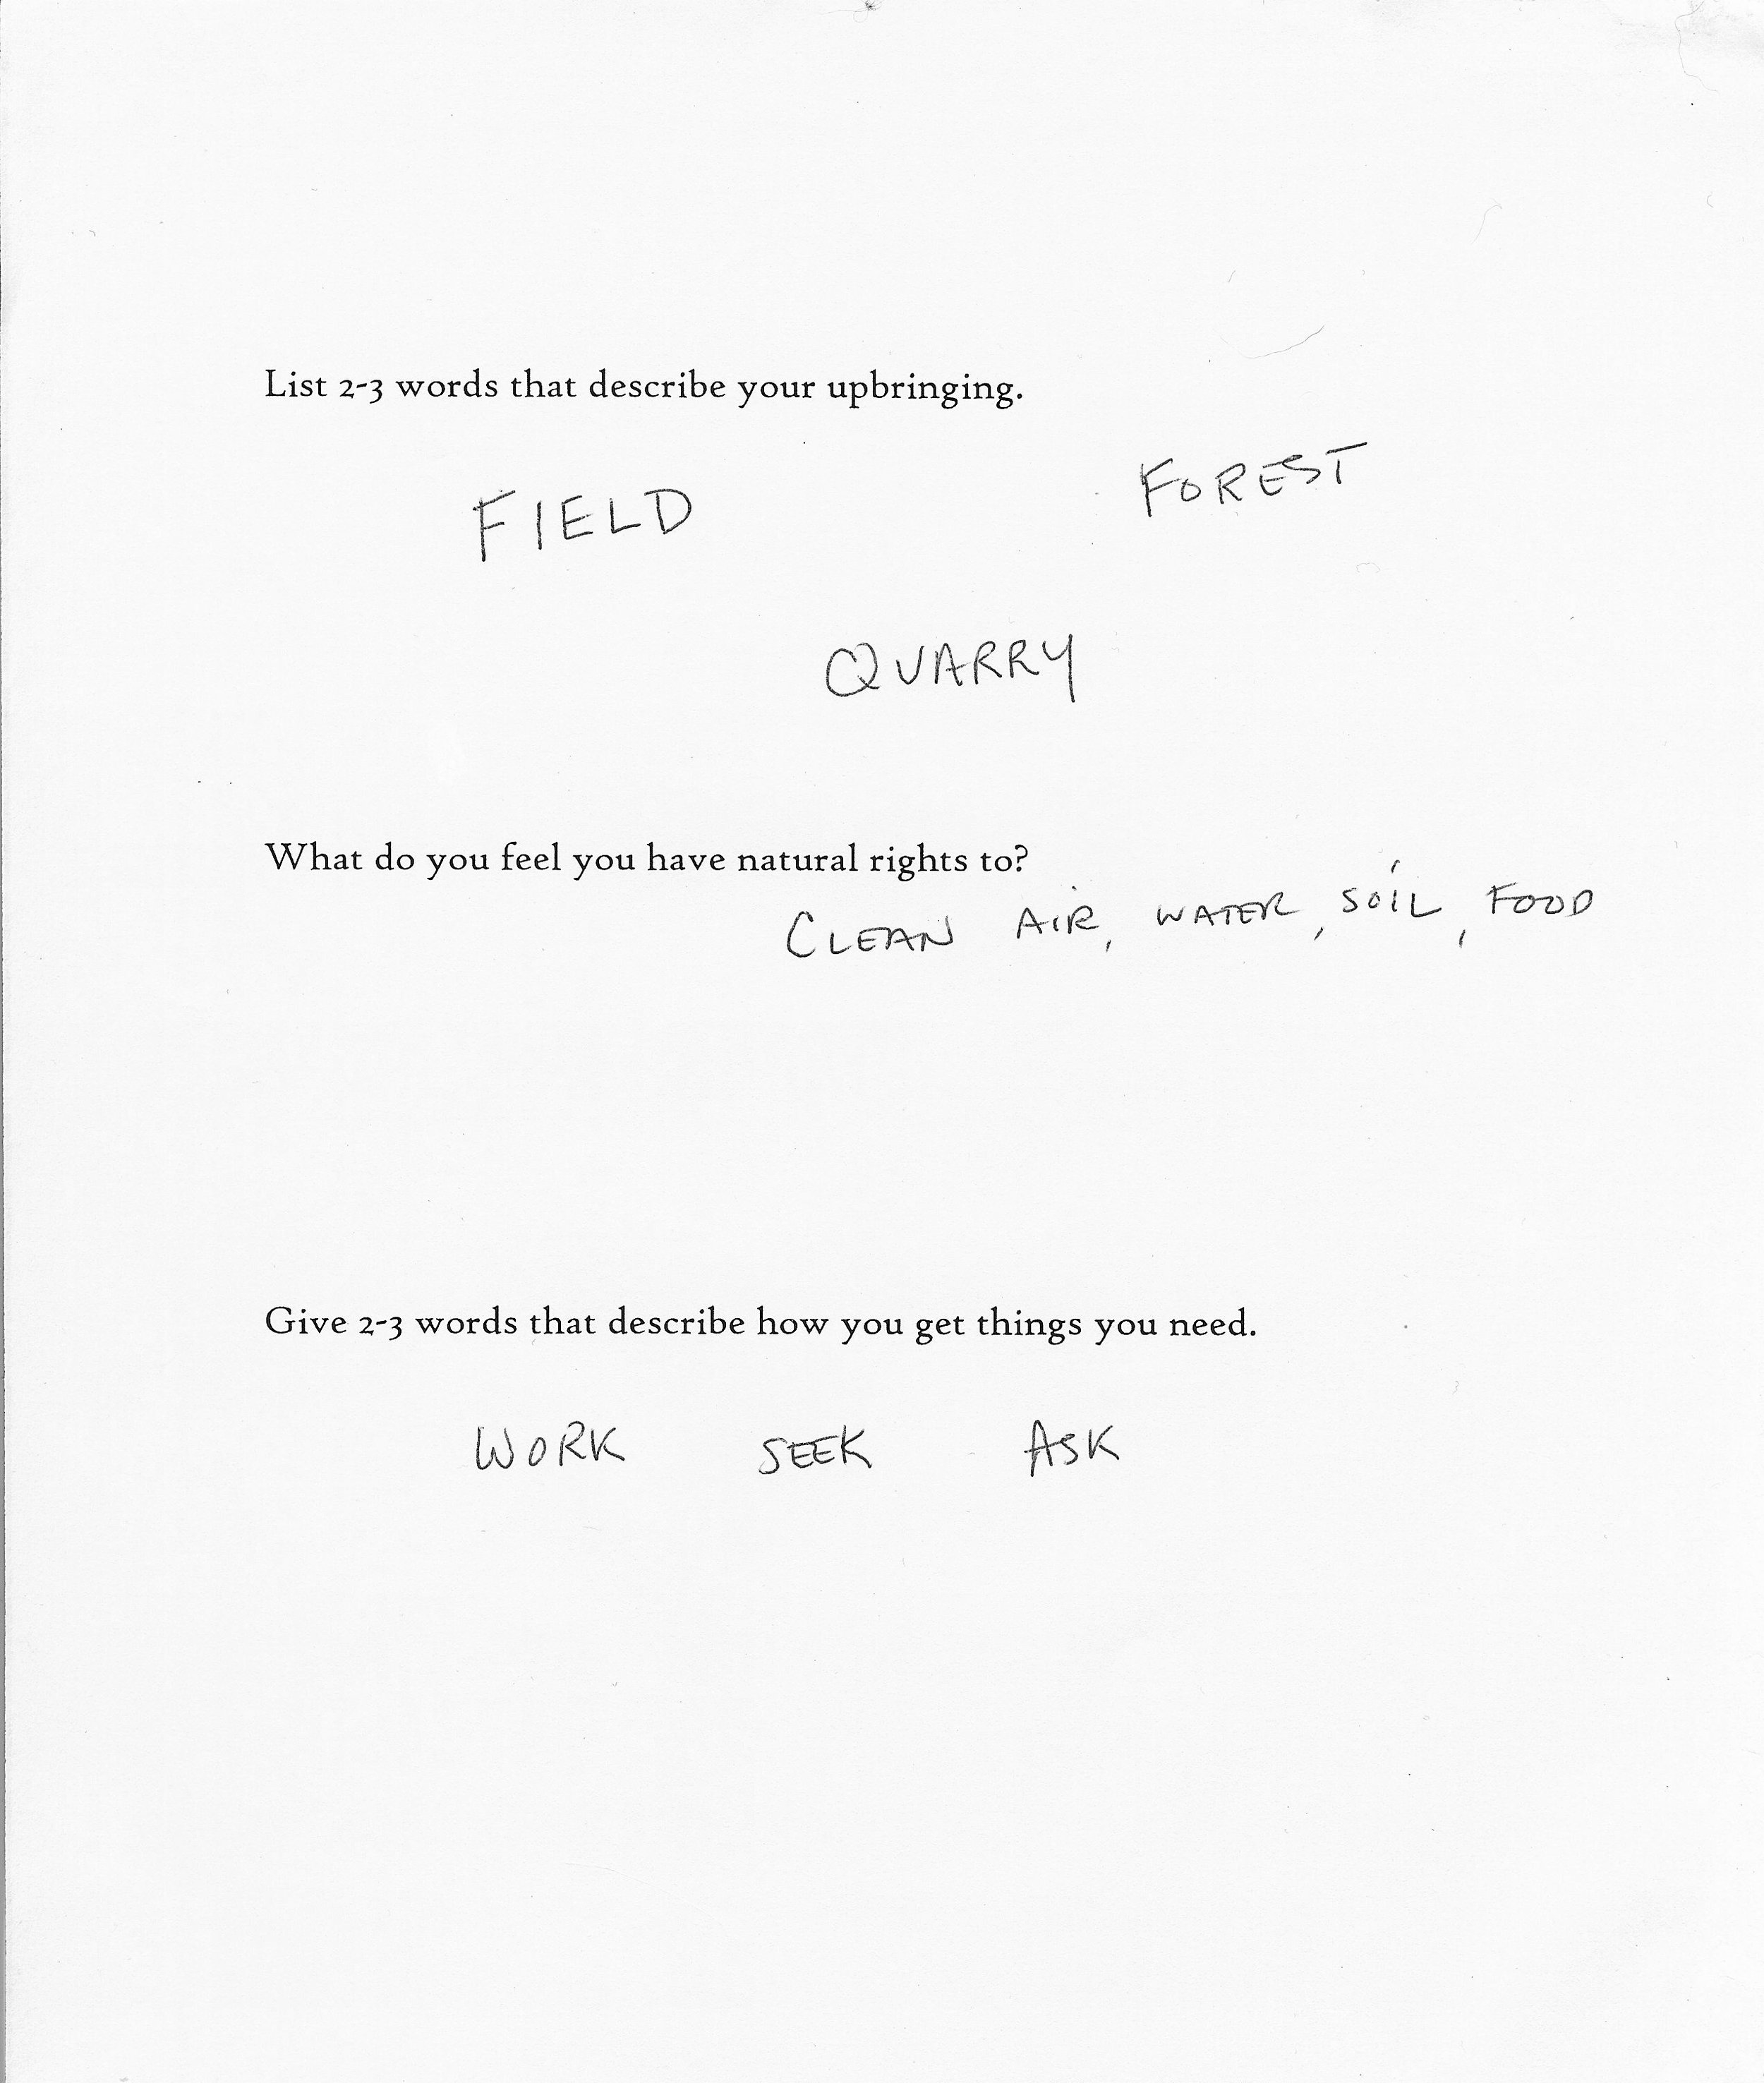 List 2-3 words that describe your upbringing.
FIELD FOREST
QUARRY
What do you feel you have natural rights to?
CLEAN AIR, WATER, SOIL, FOOD
Give 2-3 words that describe how you get things you need.
WORK SEEK ASK